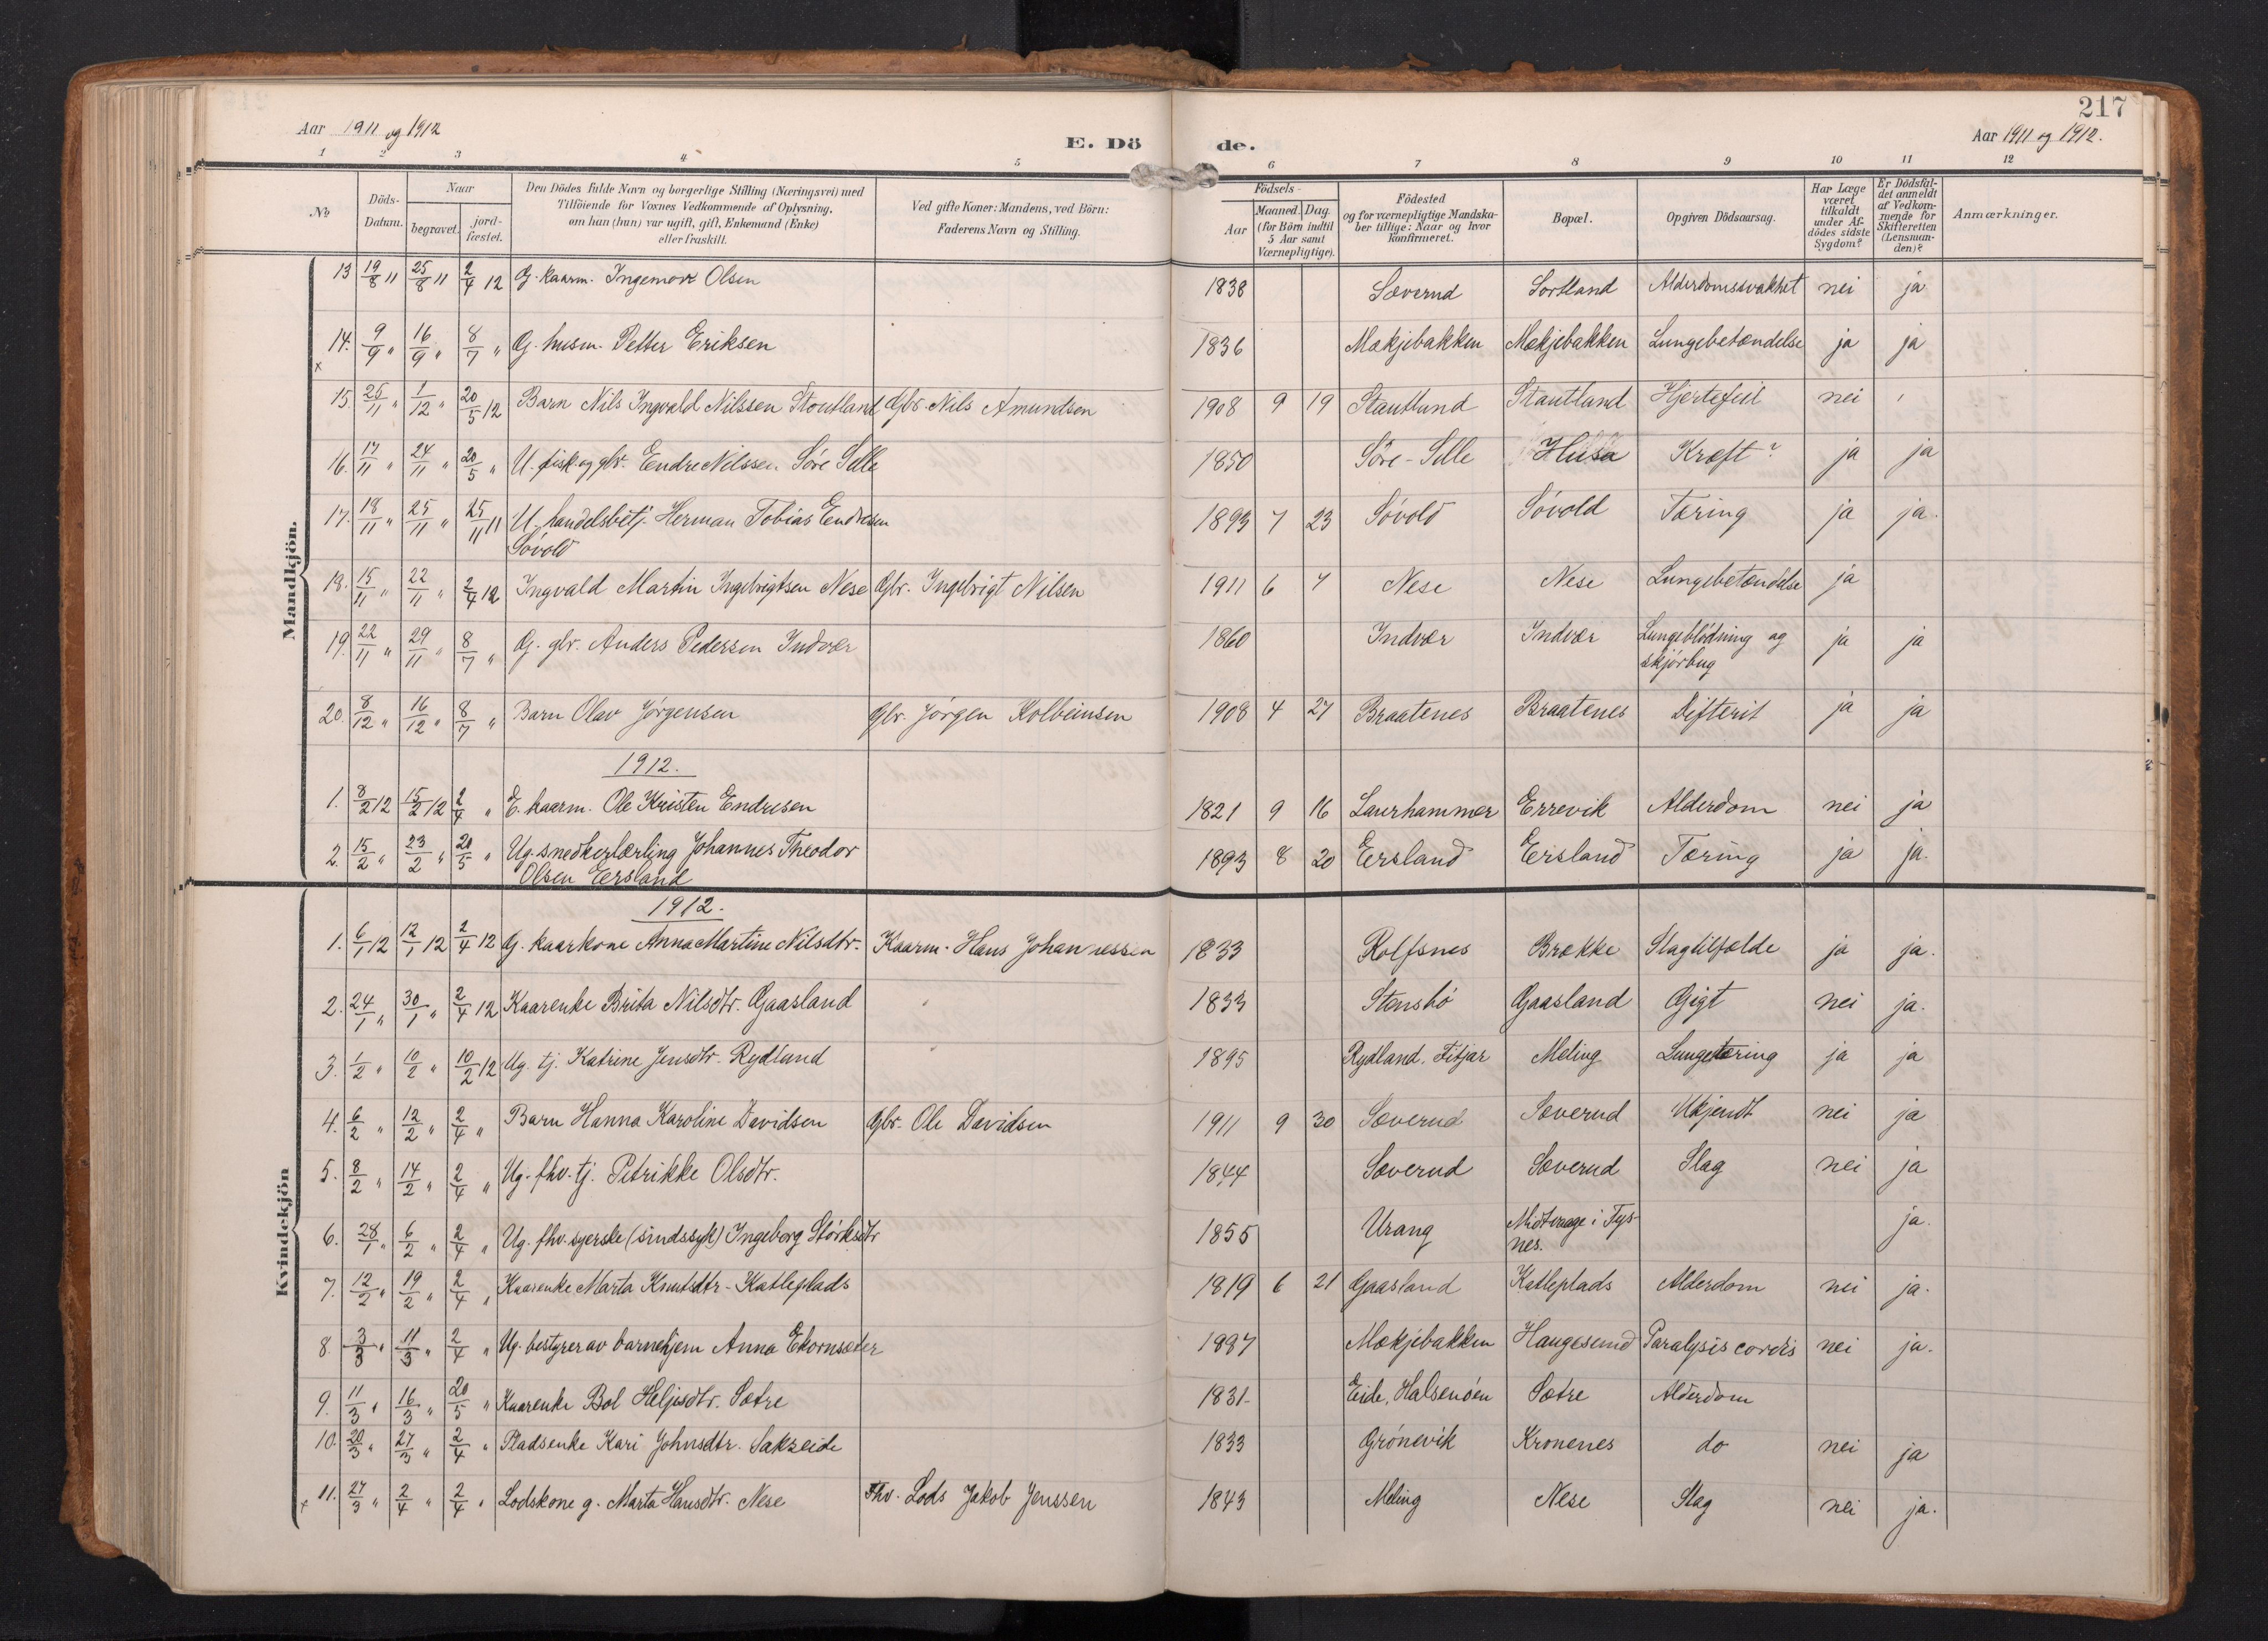 217
Aar 1911 og 1912
E. Dö de.
Aar 1911 og 1912.
1 2 3 4 5 6 7 8 9 10 11 12
No
Döds-Datum.
Naar
begravet.
jord-fæstet.
Den Dödes fulde Navn og borgerlige Stilling (Næringsvei) med
Tilföiende for Voxnes Vedkommende af Oplysning,
om han (hun) var ugift, gift, Enkemand (Enke)
eller fraskilt.
Ved gifte Koner: Mandens, ved Börn:
Faderens Navn og Stilling.
Födsels-
Aar
Maaned. Dag.
(for Börn indtil
5 Aar samt
Værnepligtige).
Födested
og for værnepligtige Mandska-
ber tillige: Naar og hvor
konfirmeret.
Bopæl.
Opgiven Dödsaarsag.
Har Læge
været
tilkaldt
under Af-
dödes sidste
Sygdom?
Er Dödsfal-
det anmeldt
af Vedkom-
mende for
Skifteretten
(Lensman-
den)?
Anmærkninger.
Mandkjön.
13 19/8 11 25/8 11 2/4 12 G. kaarm. Ingemor Olsen 1838 Sæverud Sortland Alderdomssvakhet nei ja
14. 9/9 " 16/9 " 8/7 " G. husm. Petter Eriksen 1836 Mækjebakken Mækjebakken Lungebetændelse ja ja
x
15. 25/11 " 1/12 " 20/5 12 Barn Nils Ingvald Nilssen Stoutland Gbr. Nils Amundsen 1908 9 19 Stautland Stautland Hjertefeil nei
16. 17/11 " 24/11 " 20/5 " U. fisk. og gbr. Endre Nilssen Söre Selle 1850 Söre-Selle Husa Kræft? ja ja
17. 18/11 " 25/11 " 25/11 11 U. handelsbetj. Herman Tobias Endresen 1893 7 23 Sövold Sövold Tæring ja ja.
Sövold
18. 15/11 " 22/11 " 2/4 12 Ingvald Martin Ingebrigtsen Nese Gbr. Ingebrigt Nilsen 1911 6 7 Nese Nese Lungebetændelse ja
19. 22/11 " 29/11 " 8/7 " G. gbr. Anders Pedersen Indvær 1860 Indvær Indvær Lungeblödning og ja ja
skjörbug
20. 8/12 " 16/12 " 8/7 " Barn Olav Jörgensen Gbr. Jörgen Kolbeinsen 1908 4 27 Braatenes Braatenes Difterit ja ja
1912.
1. 8/2 12 15/2 12 2/4 " E. kaarm. Ole Kristen Endresen 1821 9 16 Laurhammer Errevik Alderdom nei ja
2. 15/2 " 23/2 " 20/5 " Ug. snedkerlærling Johannes Theodor 1893 8 20 Eersland Eersland Tæring ja ja.
Olsen Eersland
Kvindekjön
1912.
1. 6/1 12 12/1 12 2/4 12 G. kaarkone Anna Martine Nilsdtr. Kaarm. Hans Johannessen 1833 Rolfsnes Brække Slagtilfælde ja ja.
2. 24/1 " 30/1 " 2/4 12 Kaarenke Brita Nilsdtr. Gaasland 1833 Stensbö Gaasland Gigt nei ja.
3. 1/2 " 10/2 " 10/2 12 Ug. tj. Katrine Jensdtr. Rydland 1895 Rydland. Fitjar Meling Lungetæring ja ja
4. 6/2 " 12/2 " 2/4 " Barn Hanna Karoline Davidsen Gbr. Ole Davidsen 1911 9 30 Sæverud Sæverud Ukjendt nei ja
5. 8/2 " 14/2 " 2/4 " Ug. fhv. tj. Petrikke Olsdtr. 1844 Sæverud Sæverud Slag nei ja
6. 28/1 " 6/2 " 2/4 " Ug. fhv. syerske (sindssyk) Ingeborg Störksdtr 1855 Urang Midtvaage i Tys- ja.
nes.
7. 12/2 " 19/2 " 2/4 " Kaarenke Marta Knutsdtr - Katleplads 1819 6 21 Gaasland Katleplads Alderdom nei ja.
8. 3/3 " 11/3 " 2/4 " Ug. bestyrer av barnehjem Anna Ekornsæter Mækjebakken Haugesund Paralysis cordis nei ja.
9. 11/3 " 16/3 " 20/5 " Kaarenke Bol Heljesdtr. Sætre 1831. Eide, Halsenöen Sætre Alderdom
10. 20/3 " 27/3 " 2/4 " Pladsenke Kari Johnsdtr. Sakseide 1833 Grönevik Kronenes do nei ja
x 11. 27/3 " 2/4 " 2/4 " Lodskone g. Marta Hansdtr. Nese Fhv. Lods Jakob Jenssen 1843 Meling Nese Slag nei ja.